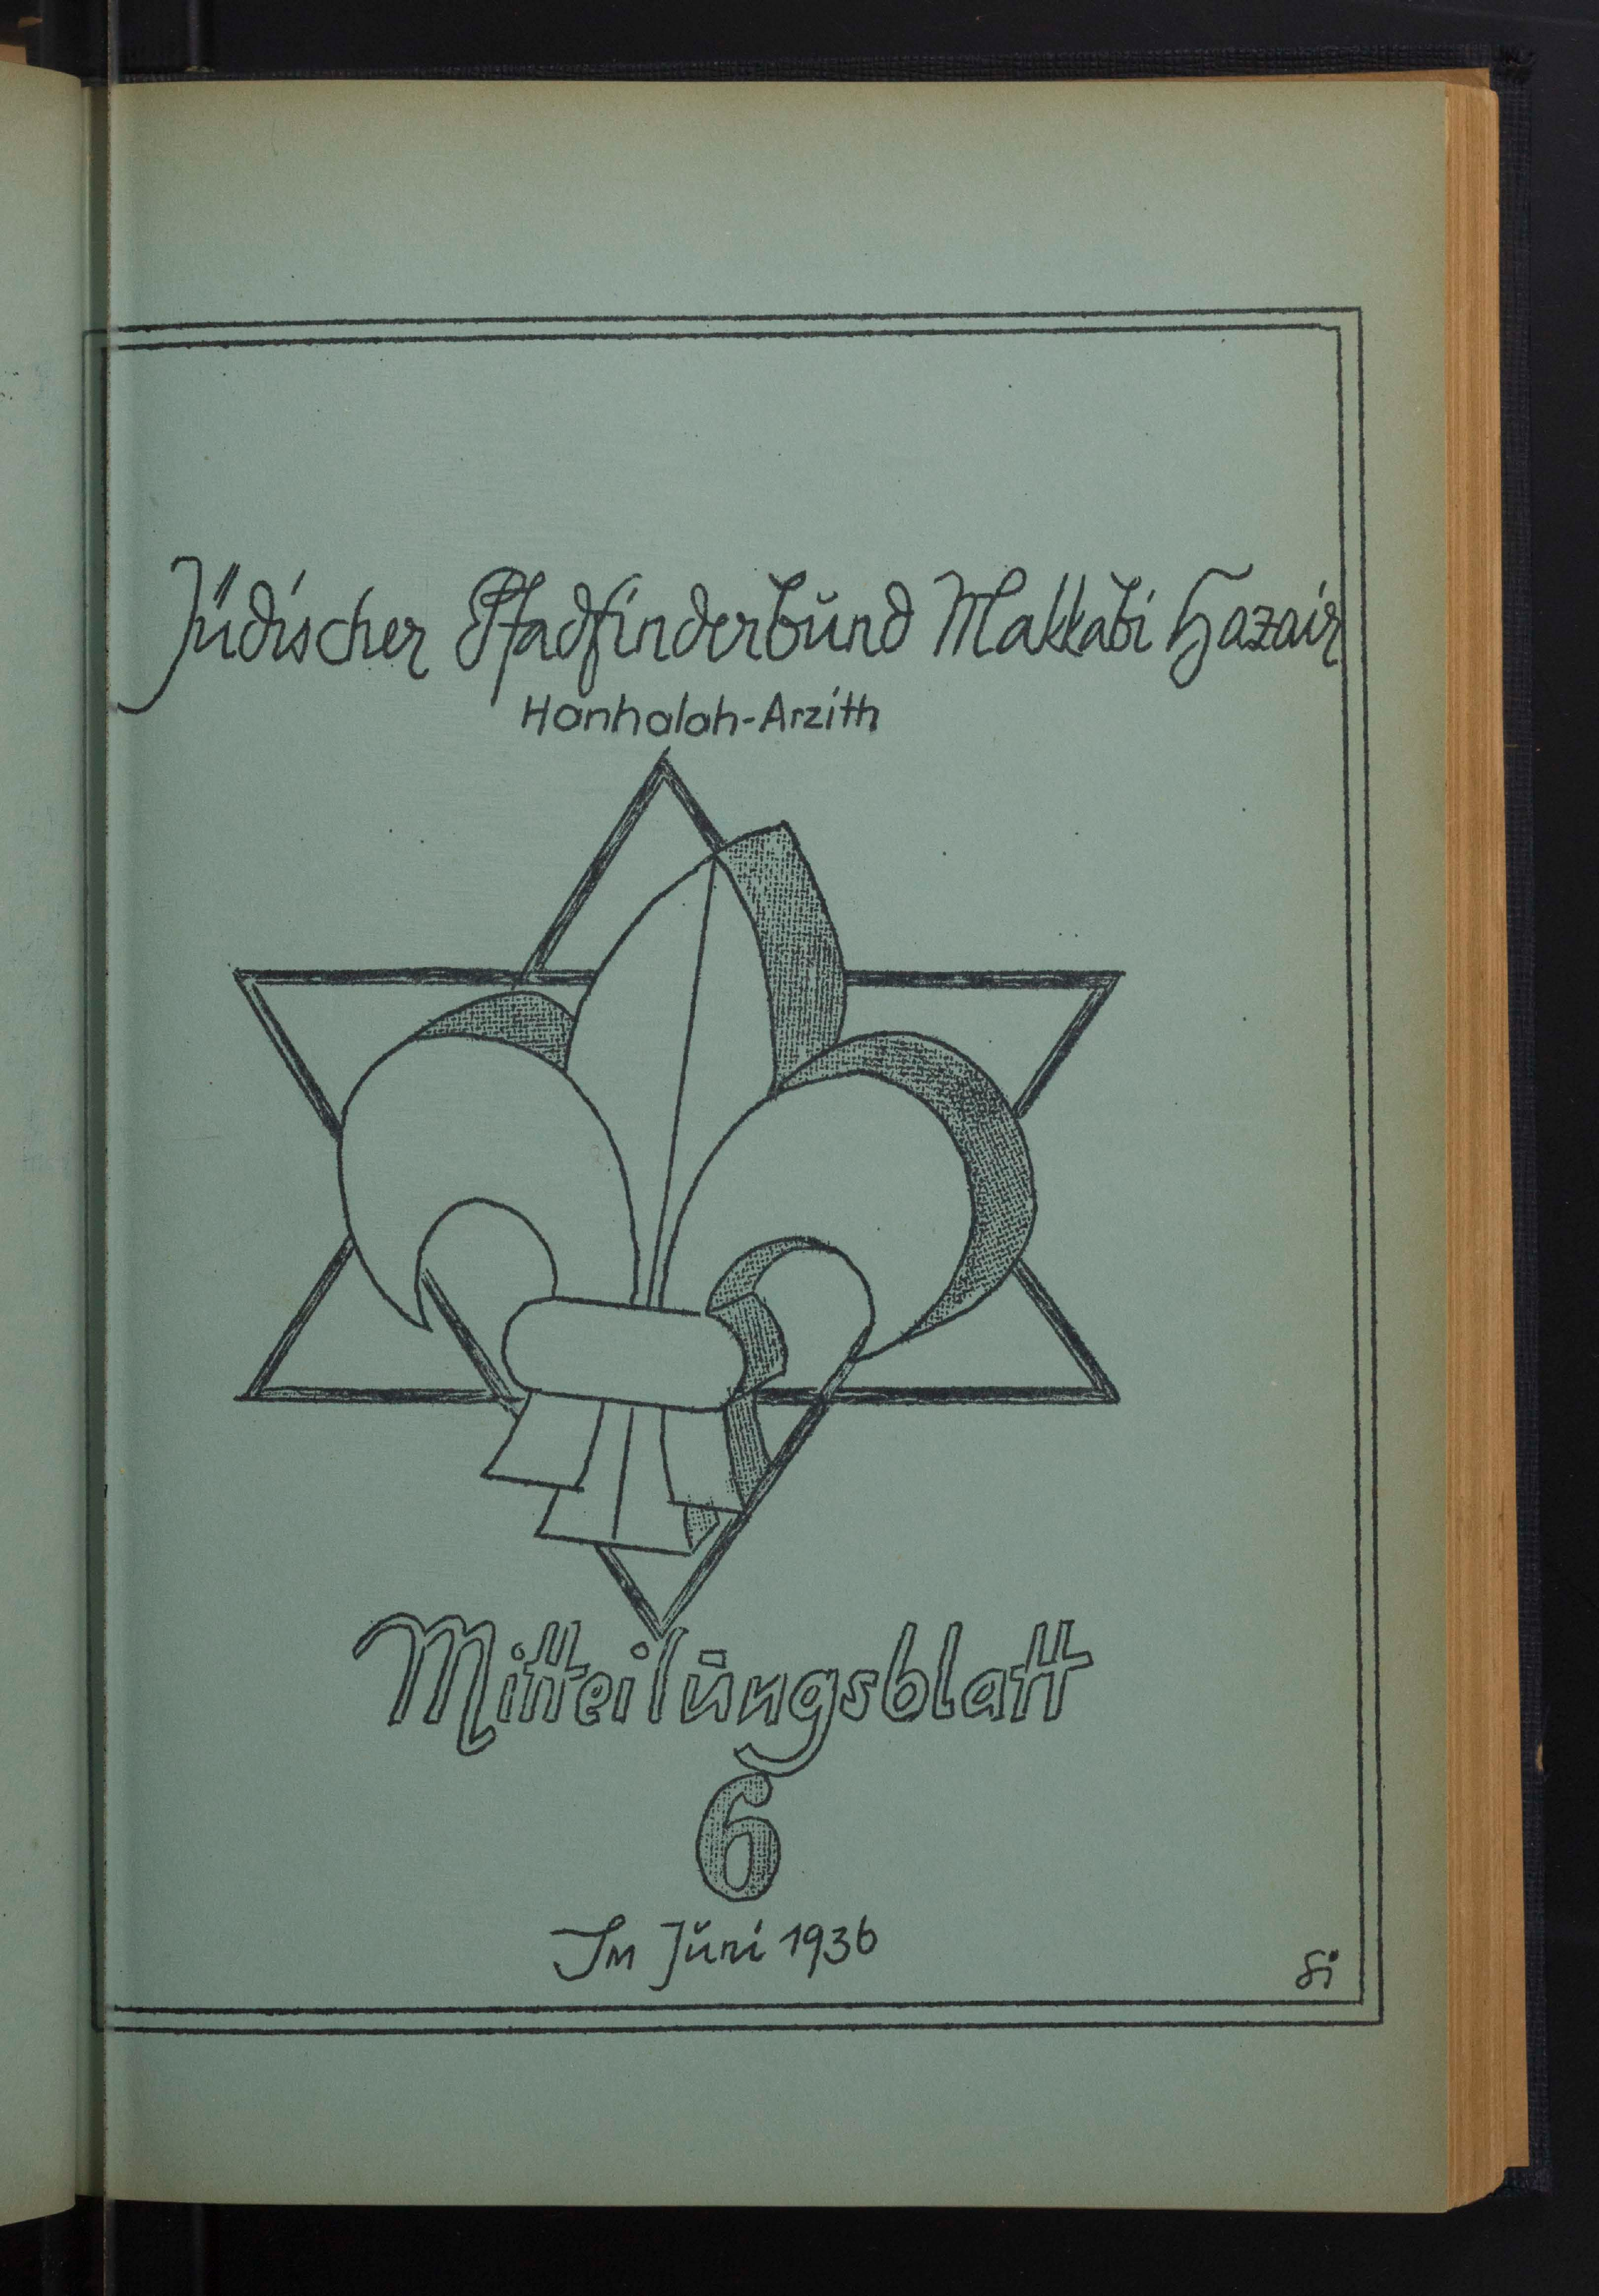 Jüdischer Pfadfinderbund Makkabi Hazair
Hanhalah-Arzith
Mitteilungsblatt
6
Im Juni 1936
Si